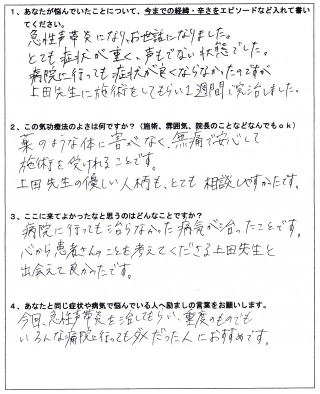 1、あなたが悩んでいたことについて、今までの経緯・辛さをエピソードなど入れて書い
てください。
急性声帯炎になり、お世話になりました。
とても症状が重く、声もでない状態でした。
病院に行っても症状が良くならなかったのですが
上田先生に施術をしてもらい1週間で完治しました。
2、この気功療法のよさは何ですか？（施術、雰囲気、院長のことなどなんでもok）
薬のような体に害がなく、無痛で安心して
施術を受けれることです。
上田先生の優しい人柄も、とても相談しやすかったです。
3、ここに来てよかったなと思うのはどんなことですか？
病院に行っても治らなかった病気が治ったことです。
心から患者さんのことを考えてくださる上田先生と
出会えて良かったです。
4、あなたと同じ症状や病気で悩んでいる人へ励ましの言葉をお願いします。
今回、急性声帯炎を治してもらい、重度のものでも
いろんな病院に行ってもダメだった人におすすめです。